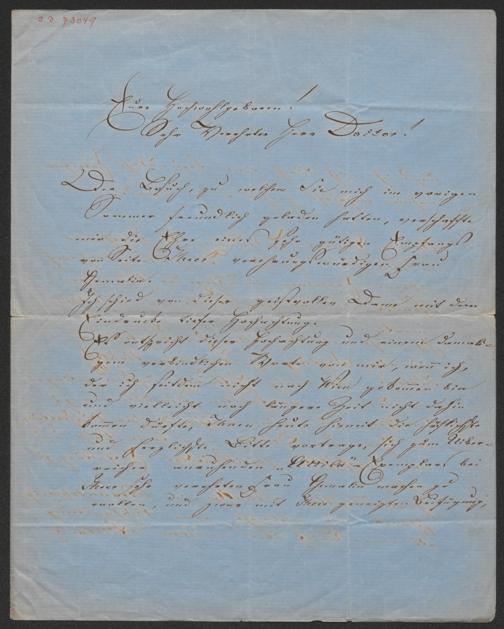 Eure Hochwohlgeboren!
Sehr Verehrter Herr Doctor!
Der Besuch, zu welchem Sie mich im vorigen
Sommer freundlich geladen hatten, verschaffte
mir die Ehre eines sehr gütigen Empfangs
von Seite Ihrer verehrungswürdigen Frau
Gemalin.
Ich schied von dieser geistvollen Dame mit dem
Eindrucke tiefer Hochachtung.
Es entspricht dieser Hochachtung und einem damali-
gen verbindlichen Worte von mir, wenn ich,
der ich seitdem nicht nach Wien gekommen bin
und vielleicht noch längere Zeit nicht dahin
kommen dürfte, Ihnen heute hiemit die höflichste
und Bitte vortrage, sich zum Über-
reicher Exemplares bei
Ihrer sehr verehrten Frau Gemalin machen zu
wollen, und zwar mit